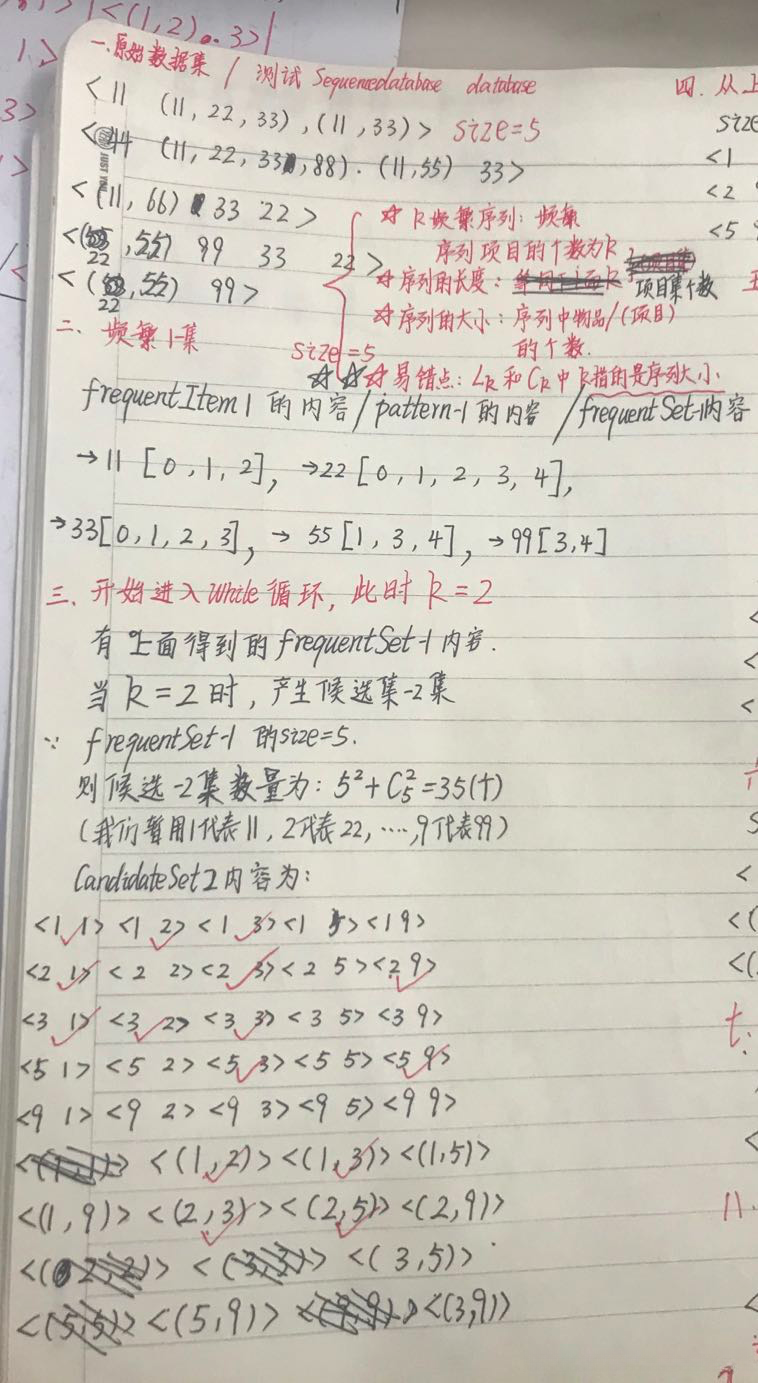 <(1,2) 3>
1>
3>
一.原始数据集 / 测试 Sequencedatabase database
<11 (11, 22, 33), (11, 33)> size=5
<44 (11, 22, 33, 88). (11,55) 33>
JUST
<(11, 66) 33 22>
☆ k频繁序列: 频繁
序列项目的个数为k
<( ,55) 99 33 22>
22
☆序列的长度: 项目集个数
<( ,55) 99>
22
☆序列的大小: 序列中物品/(项目)
的个数.
二、频繁1-集
size=5
☆☆☆易错点: Lk和Ck中k指的是序列大小
frequentItem1 的内容/pattern-1 的内容 /frequentSet-1内容
→11 [0,1,2], →22 [0, 1, 2, 3, 4],
→33[0,1,2,3], → 55 [1, 3, 4], →99[3,4]
三、开始进入while循环, 此时 k=2
有上面得到的frequentSet-1内容.
当 k=2时, 产生候选集-2集
∵ frequentSet-1 的size=5.
则候选-2集数量为: 5²+C₅²=35(个)
(我们暂用1代表11, 2代表22, ···, 9代表99)
CandidateSet2内容为:
<1 1> <1 2> <1 3> <1 5> <1 9>
<2 1> <2 2> <2 3> <2 5> <2 9>
<3 1> <3 2> <3 3> <3 5> <3 9>
<5 1> <5 2> <5 3> <5 5> <5 9>
<9 1> <9 2> <9 3> <9 5> <9 9>
<(1,1)> <(1,2)> <(1,3)> <(1,5)>
<(1,9)> <(2,3)> <(2,5)> <(2,9)>
<(2,2)> <(3,3)> <(3,5)>
<(5,5)> <(5,9)> <(9,9)> <(3,9)>
四. 从上
size
<1
<2
<5
五
<
<
<
六
<
<(
<(
七.
<
八.
<